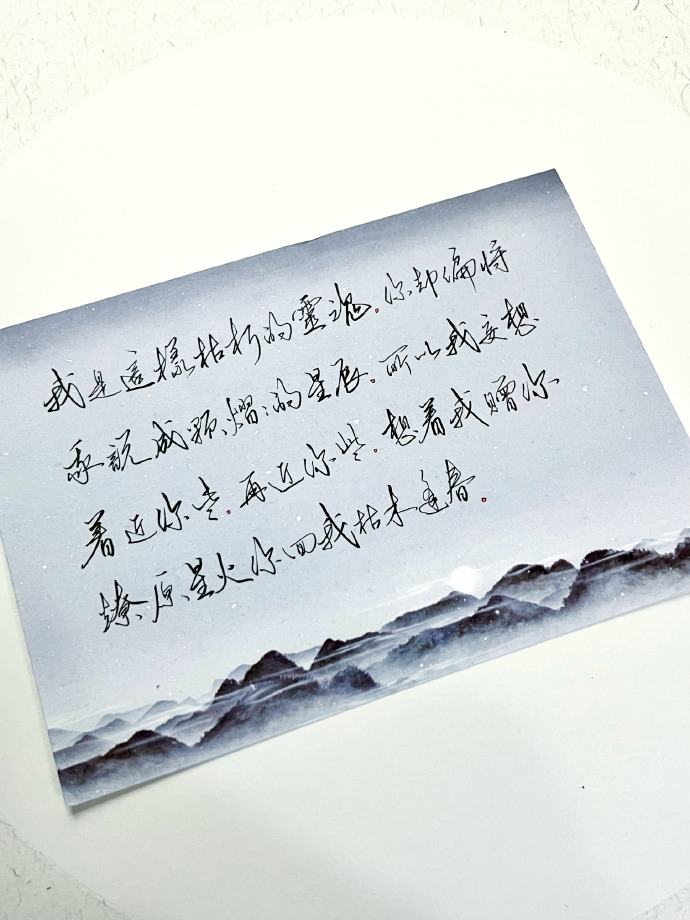 我是這樣枯朽的靈魂。你却偏将
我說成顆熠熠的星辰。所以我妄想
着近你些。再近你些。想着我贈你
燎原星火你回我枯木逢春。